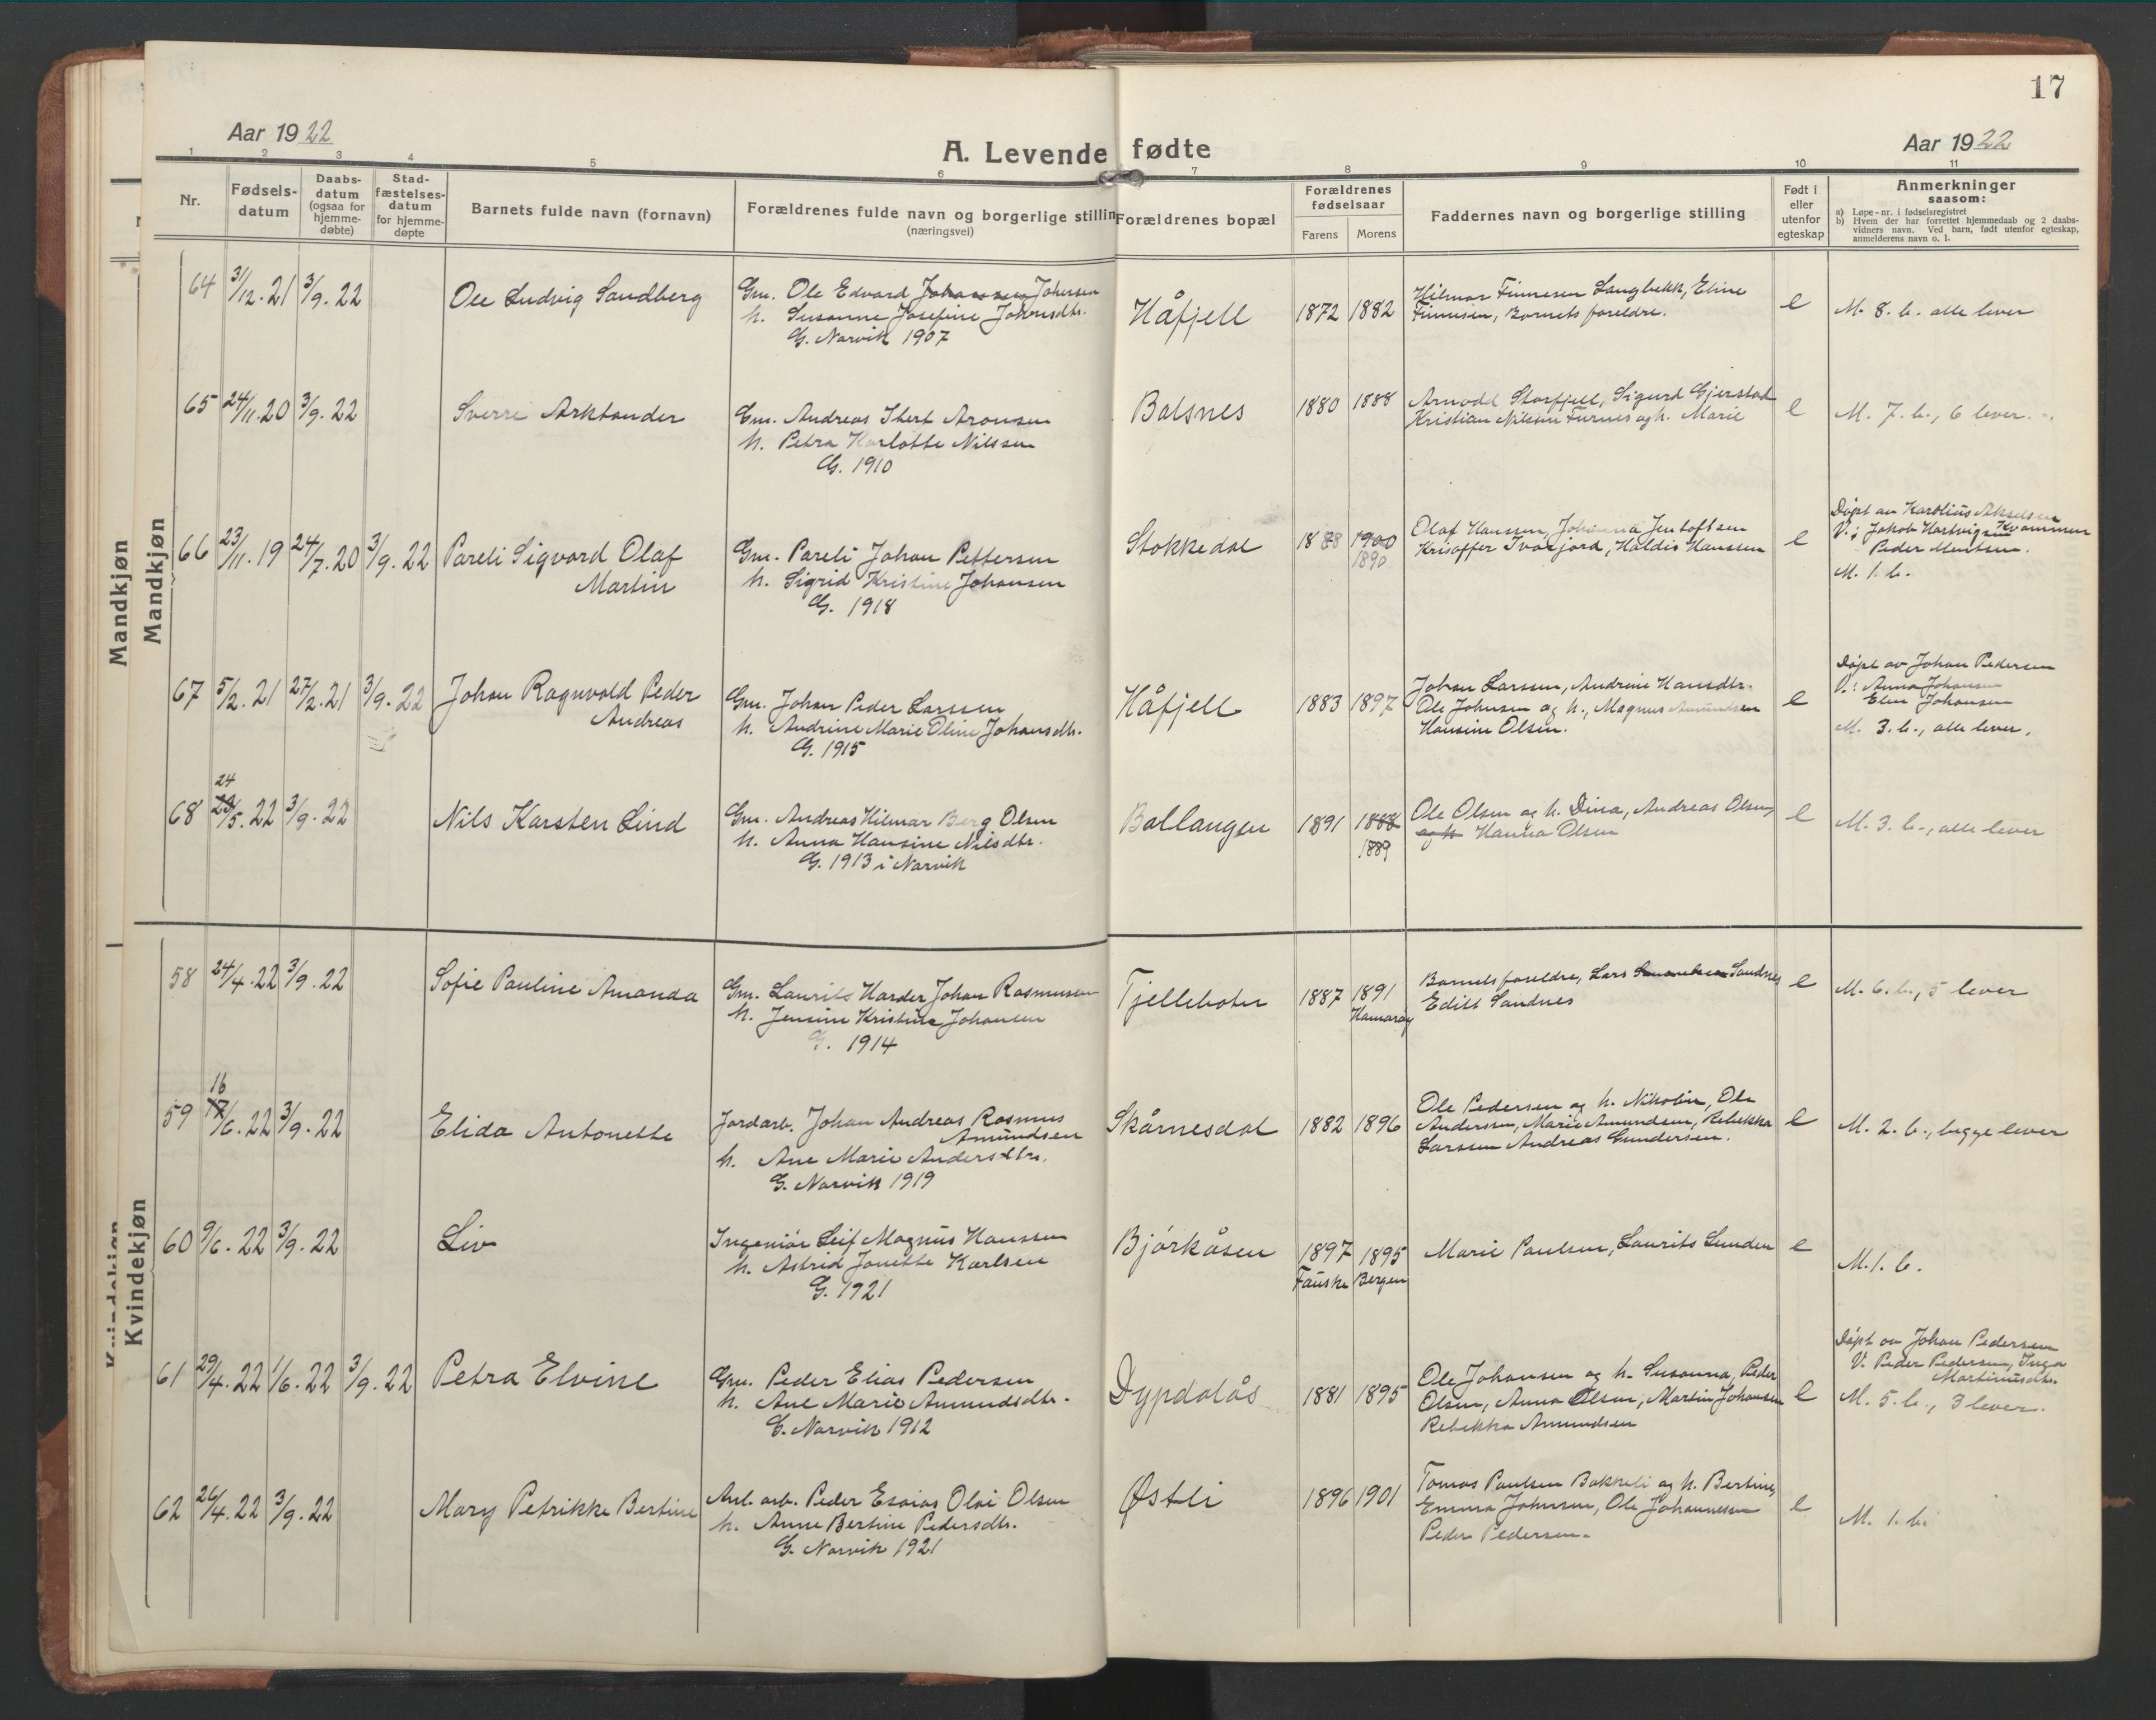 17
Aar 1922
A. Levende fødte
Aar 1922
1 2 3 4 5 6 7 8 9 10 11
Nr.
Fødsels-
datum
Daabs-
datum
(ogsaa for
hjemme-
døbte)
Stad-
fæstelses-
datum
for hjemme-
døpte
Barnets fulde navn (fornavn)
Forældrenes fulde navn og borgerlige stillin
(næringsvei)
Forældrenes bopæl
Forældrenes
fødselsaar
Farens Morens
Faddernes navn og borgerlige stilling
Født i
eller
utenfor
egteskap
Anmerkninger
saasom:
a) Løpe-nr. i fødselsregistret
b) Hvem der har forrettet hjemmedaab og 2 daabs-
vidners navn. Ved barn, født utenfor egteskap,
anmelderens navn o. l.
Mandkjøn
Mandkjøn
64 31/12.21 3/9.22 Ole Ludvig Sandberg
Gm. Ole Edvard Johansen Johnsen
h. Susanne Josefine Johnsdtr.
G. Narvik 1907
Håfjell 1872 1882
Hilmar Finnesen Langbekk, Eline
Finnesen, Barnets foreldre.
e
M. 8. b. alle lever
65 24/11.20 3/9.22 Sverre Arktander
Gm. Andreas Ihert Aronsen
h. Petra Karlotte Nilssen
G. 1910
Balsnes 1880 1888
Arnodd Storfjell, Sigurd Gjerstad
Kristian Nilssen Furnes og h. Marie
e
M. 7. b., 6 lever.
66 23/11.19 24/7.20 3/9.22 Pareli Sigvard Olaf
Martin
Gm. Pareli Johan Pettersen
h. Sigrid Kristine Johansen
G. 1918
Stokkedal 1888 1900
1890
Olaf Hanssen, Johanna Jentoftsen
Kristoffer Ivarjord, Haldis Hanssen
e
Døpt av Karolius Akselsen
V.: Jakob Hartvigsen Kvammen
Peder Mentsen.
M. 1. b.
67 5/2.21 27/2.21 3/9.22 Johan Ragnvald Peder
Andreas
Gm. Johan Peder Larssen
h. Andrine Marie Oline Johansdtr.
G. 1915
Håfjell 1883 1897
Johan Larssen, Andrine Hansdtr.
Ole Johnsen og h., Magnus Amundsen
Hansine Olsen.
e
Døpt av Johan Pedersen
V.: Anna Johansen
Elen Johansen
M. 3. b., alle lever.
24
68 23/5.22 3/9.22 Nils Karsten Lind
Gm. Andreas Hilmar Berg Olsen
h. Anna Hansine Nilsdtr.
G. 1913 i Narvik
Ballangen 1891 1888
1889
Ole Olsen og h. Dina, Andreas Olsen,
og h Hanna Olsen
e
M. 3. b., alle lever
Kvindekjøn
58 24/4.22 3/9.22 Sofie Pauline Amanda
Gm. Laurits Harder Johan Rasmussen
h. Jensine Kristine Johansen
G. 1914
Tjellebotn 1887 1891
Hamarøy
Barnets foreldre, Lars Samuelsen Sandnes
Edith Sandnes
e
M. 6. b., 5 lever
16
59 17/6.22 3/9.22 Elida Antonette
Jordarb. Johan Andreas Rasmus
Amundsen
h. Ane Marie Andersdtr.
G. Narvik 1919
Skårnesdal 1882 1896
Ole Pedersen og h. Nikoline, Ole
Anderssen, Marie Amundsen, Rebekka
Larssen Andreas Gundersen.
e
M. 2. b., begge lever
60 9/6.22 3/9.22 Liv
Ingeniør Leif Magnus Hanssen
h. Astrid Jonette Karlsen
G. 1921
Bjørkåsen 1897 1895
Fauske Bergen
Marie Paulsen, Laurits Lunden
e
M. 1. b.
61 29/4.22 1/6.22 3/9.22 Petra Elvine
Gm. Peder Elias Pedersen
h. Ane Marie Amundsdtr.
G. Narvik 1912
Dypdalås 1881 1895
Ole Johansen og h. Susanna, Peder
Olsen, Anna Olsen, Martin Johansen
Rebekka Amundsen
e
Døpt av Johan Pedersen
V. Peder Pedersen, Inga
Martinusdtr.
M. 5. b., 3 lever.
62 26/4.22 3/9.22 Mary Petrikke Bertine
Anl. arb. Peder Esaias Olai Olsen
h. Anne Bertine Pedersdtr.
G. Narvik 1921
Østli 1896 1901
Tomas Paulsen Bakkeli og h. Bertine,
Emma Johnsen, Ole Johannesen
Peder Pedersen.
e
M. 1. b.